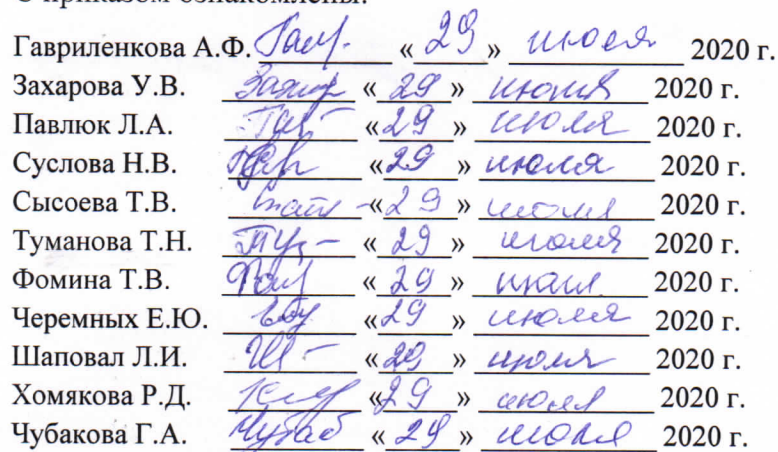 С приказом ознакомлены:
Гавриленкова А.Ф. « 29 » июля 2020 г.
Захарова У.В. « 29 » июля 2020 г.
Павлюк Л.А. « 29 » июля 2020 г.
Суслова Н.В. « 29 » июля 2020 г.
Сысоева Т.В. « 29 » июля 2020 г.
Туманова Т.Н. « 29 » июля 2020 г.
Фомина Т.В. « 29 » июля 2020 г.
Черемных Е.Ю. « 29 » июля 2020 г.
Шаповал Л.И. « 29 » июля 2020 г.
Хомякова Р.Д. « 29 » июля 2020 г.
Чубакова Г.А. « 29 » июля 2020 г.